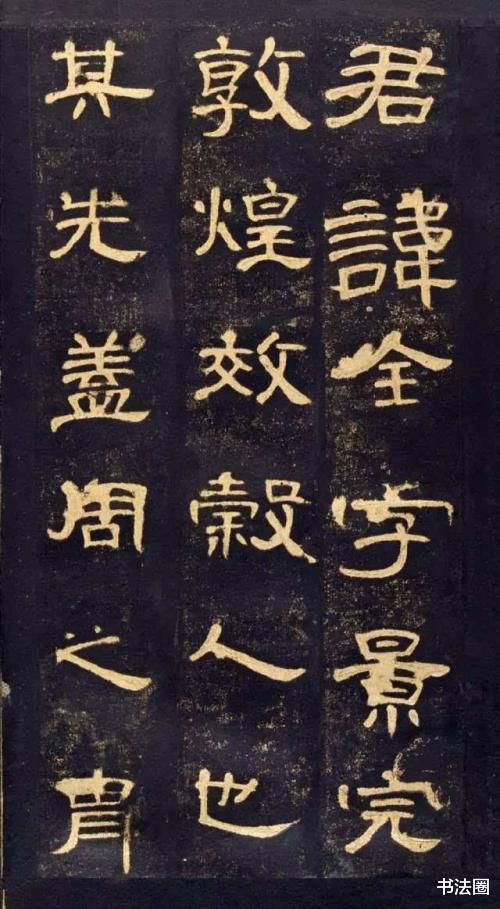 君諱全字景完
敦煌效穀人也
其先蓋周之胄
书法圈